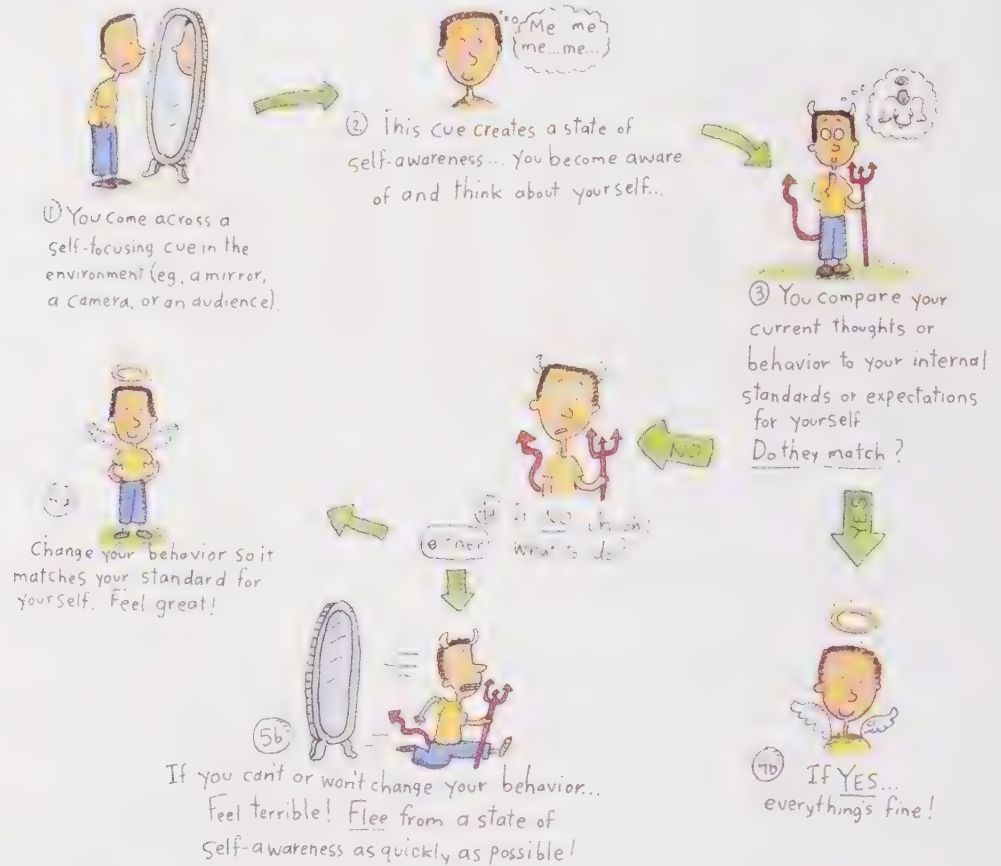 Me me
me...me...
① You come across a
self-focusing cue in the
environment (eg, a mirror,
a camera, or an audience).
② This cue creates a state of
self-awareness... you become aware
of and think about yourself...
③ You compare your
current thoughts or
behavior to your internal
standards or expectations
for yourself
Do they match?
NO
What to do?
YES
If YES...
everything's fine!
Change your behavior so it
matches your standard for
yourself. Feel great!
5b
If you can't or won't change your behavior...
Feel terrible! Flee from a state of
self-awareness as quickly as possible!